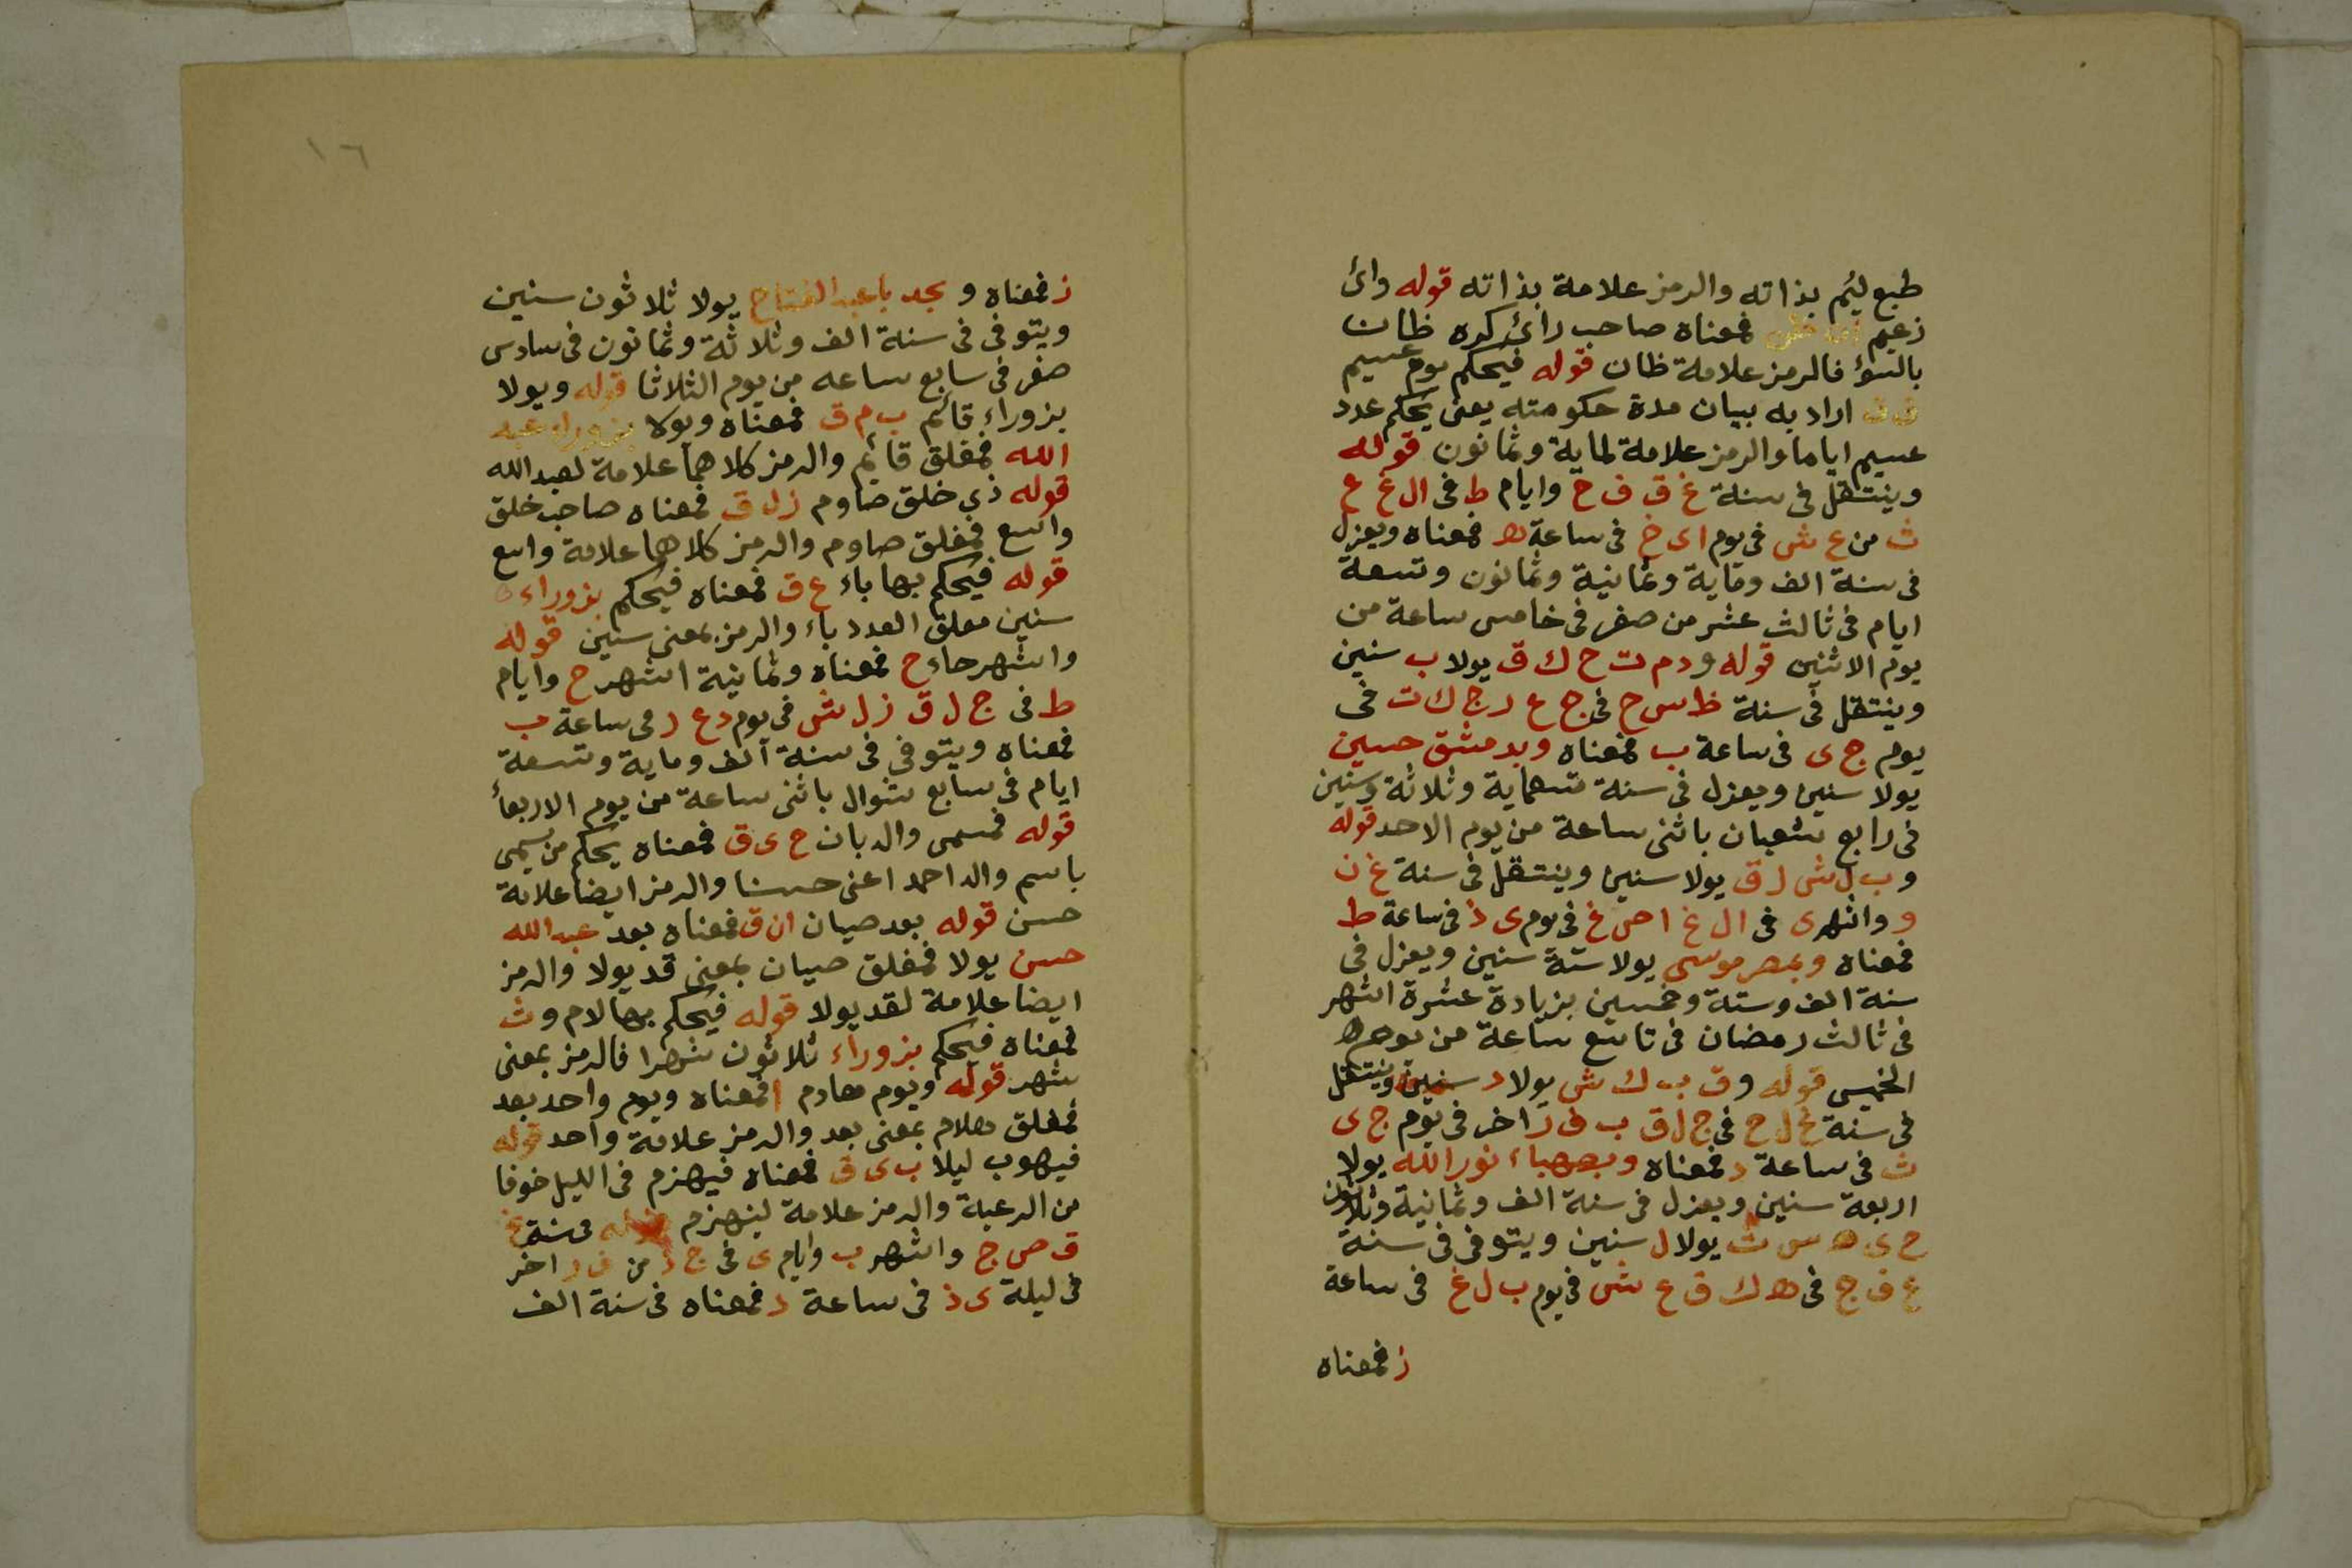 طبع لئيم بذاته والرمز علامة بذاته قوله وائ
زعيم فمعناه صاحب رائ كره ظان
بالسوٴ فالرمز علامة ظان قوله فيحكم يوم عسيم
ق ق اراد به بيان مدة حكومته يعنى يحكم عدد
عسيم اياما والرمز علامة لماية وثمانون قوله
وينتقل فى سنة غ ق ف ح وايام ط فى ال غ ع
ث من ع ش فى يوم اى خ فى ساعة ه فمعناه ويعزل
فى سنة الف وماية وثمانية وثمانون وتسعة
ايام فى ثالث عشر من صفر فى خامس ساعة من
يوم الاثنين قوله ودم ت ح ك ق يولا ب سنين
وينتقل فى سنة ظ س ح فى ج ع د ج ك ت فى
يوم ج ى فى ساعة ب فمعناه وبدمشق حسين
يولا سنين ويعزل فى سنة تسعماية وثلاثة وسنين
فى رابع شعبان باثنى ساعة من يوم الاحد قوله
و ب ل ش ل ق يولا سنين وينتقل فى سنة غ ن
و واشهر ى فى ال غ ا ص غ فى يوم ى ذ فى ساعة ط
فمعناه وبمصر موسى يولا ستة سنين ويعزل فى
سنة الف وستة وخمسين بزيادة عشرة اشهر
فى ثالث رمضان فى تاسع ساعة من يوم ه
الخميس قوله وق ب ك ش يولا د سنين وينتقل
فى سنة غ ل ح فى ج ل ق ب ف ر اخر فى يوم ج ى
ث فى ساعة د فمعناه وبصهباء نور الله يولا
اربعة سنين ويعزل فى سنة الف وثمانية وثلاثون
ح ى ه س ث يولا ل سنين ويتوفى فى سنة
غ ف ج فى ه ك ق ع ش فى يوم ب ل غ فى ساعة
ز فمعناه
١٦
ز فمعناه و بجد با عبد الفتاح يولا ثلاثون سنين
ويتوفى فى سنة الف وثلاثة وثمانون فى سادس
صفر فى سابع ساعه من يوم الثلاثا قوله ويولا
بزوراء قائم ب م ق فمعناه ويولا بزوراء عبد
الله فمغلق قائم والرمز كلاهما علامة لعبد الله
قوله ذي خلق صاوم زل ق فمعناه صاحب خلق
واسع فمغلق صاوم والرمز كلاهما علامة واسع
قوله فيحكم بها باء ع ق فمعناه فيحكم بزوراء
سنين مغلق العدد باء والرمز بمعنى سنين قوله
واشهر حاء ح فمعناه وثمانية اشهر ح وايام
ط فى ج ل ق ز ل ش فى يوم د ع د فى ساعة ب
فمعناه ويتوفى فى سنة الف وماية وتسعة
ايام فى سابع شوال باثنى ساعة من يوم الاربعأ
قوله فسمى والد بان ح ى ق فمعناه يحكم من يسمى
باسم والد احمد اعنى حسنا والرمز ايضا علامة
حسن قوله بعد صيان ان ق فمعناه بعد عبد الله
حسن يولا فمغلق صيان بمعنى قد يولا والرمز
ايضا علامة لقد يولا قوله فيحكم بها لام و ث
فمعناه فيحكم بزوراء ثلاثون شهرا فالرمز بمعنى
شهر قوله ويوم هادم ا فمعناه ويوم واحد بعد
فمغلق بمعنى بعد والرمز علامة واحد قوله
فيهوب ليلا ب ى ق فمعناه فيهزم فى الليل خوفا
من الرعبة والرمز علامة لينهزم قوله فى سنة غ
ق ص ج واشهر ب وايام ى فى ج ذ من ف ر اخر
فى ليلة ى ذ فى ساعة د فمعناه فى سنة الف